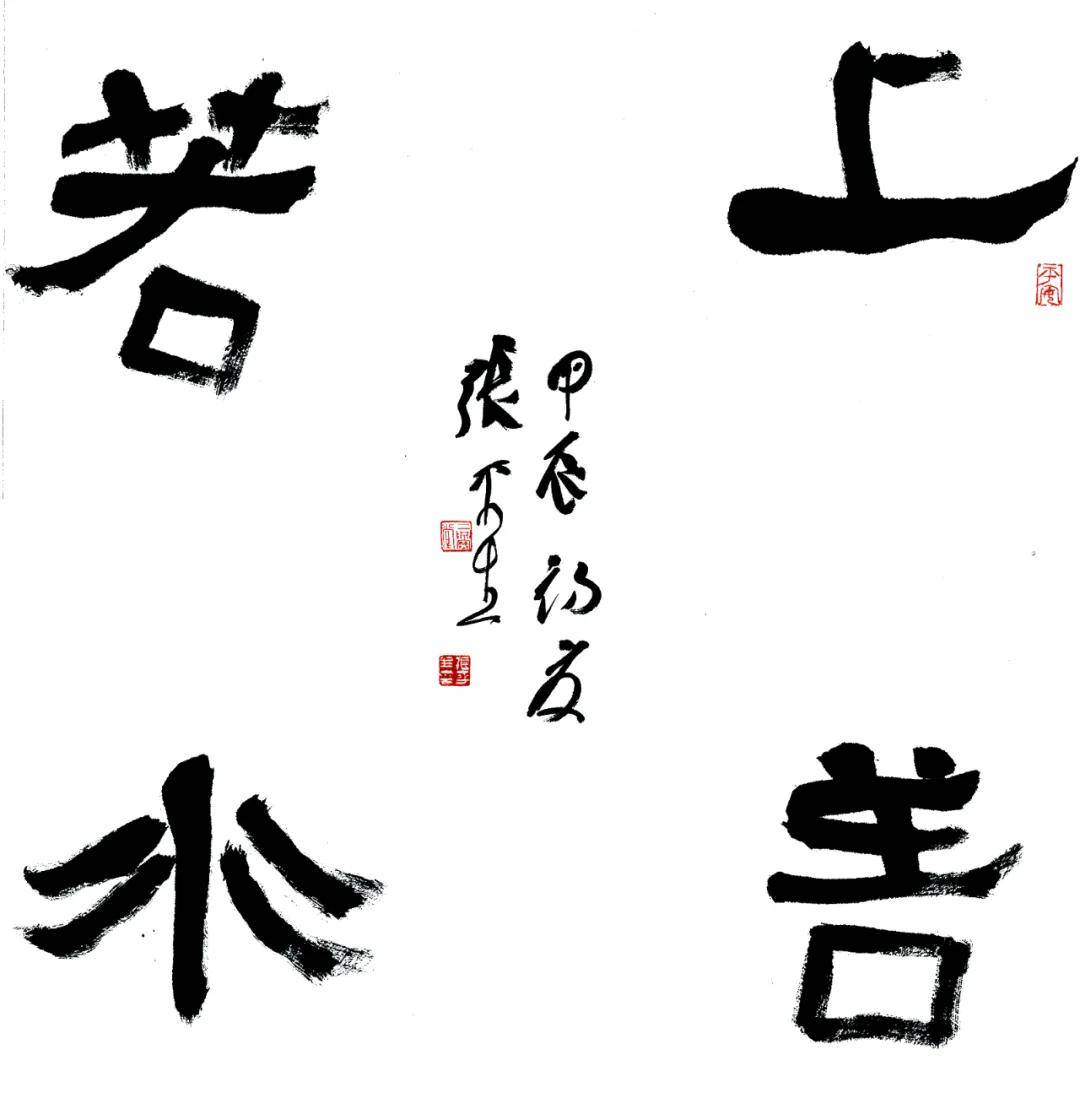 上善
若水
甲辰初夏
張
平安